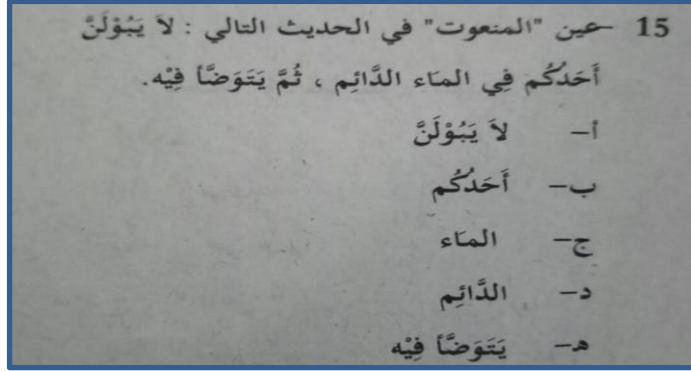 15 - عين "المنعوت" في الحديث التالي : لاَ يَبُوْلَنَّ
أَحَدُكُم فِي المَاء الدَّائِم ، ثُمَّ يَتَوَضَّأ فِيْه.
أ- لاَ يَبُوْلَنَّ
ب- أَحَدُكُم
ج- المَاء
د- الدَّائِم
هـ- يَتَوَضَّأ فِيْه